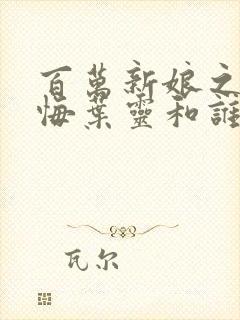 百萬新娘之
悔葉靈和誰
瓦尔